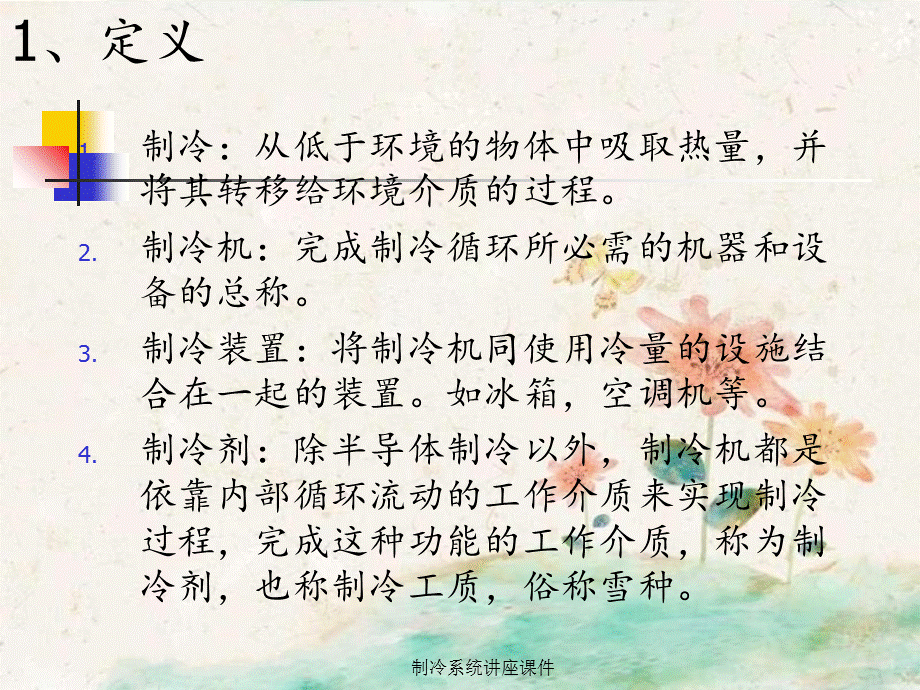 1、定义
1. 制冷：从低于环境的物体中吸取热量，并
将其转移给环境介质的过程。
2. 制冷机：完成制冷循环所必需的机器和设
备的总称。
3. 制冷装置：将制冷机同使用冷量的设施结
合在一起的装置。如冰箱，空调机等。
4. 制冷剂：除半导体制冷以外，制冷机都是
依靠内部循环流动的工作介质来实现制冷
过程，完成这种功能的工作介质，称为制
冷剂，也称制冷工质，俗称雪种。
制冷系统讲座课件